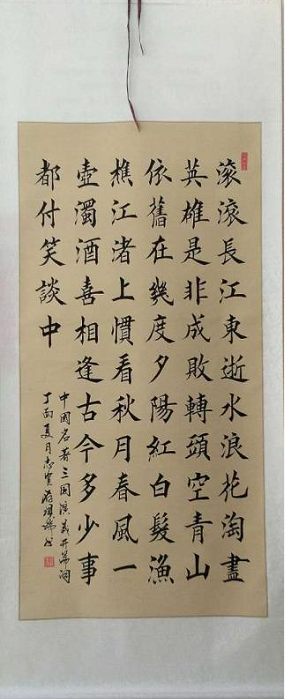 滾滾長江東逝水浪花淘盡
英雄是非成敗轉頭空青山
依舊在幾度夕陽紅白髮漁
樵江渚上慣看秋月春風一
壺濁酒喜相逢古今多少事
都付笑談中
中國名著三國演義开篇詞
丁酉夏月